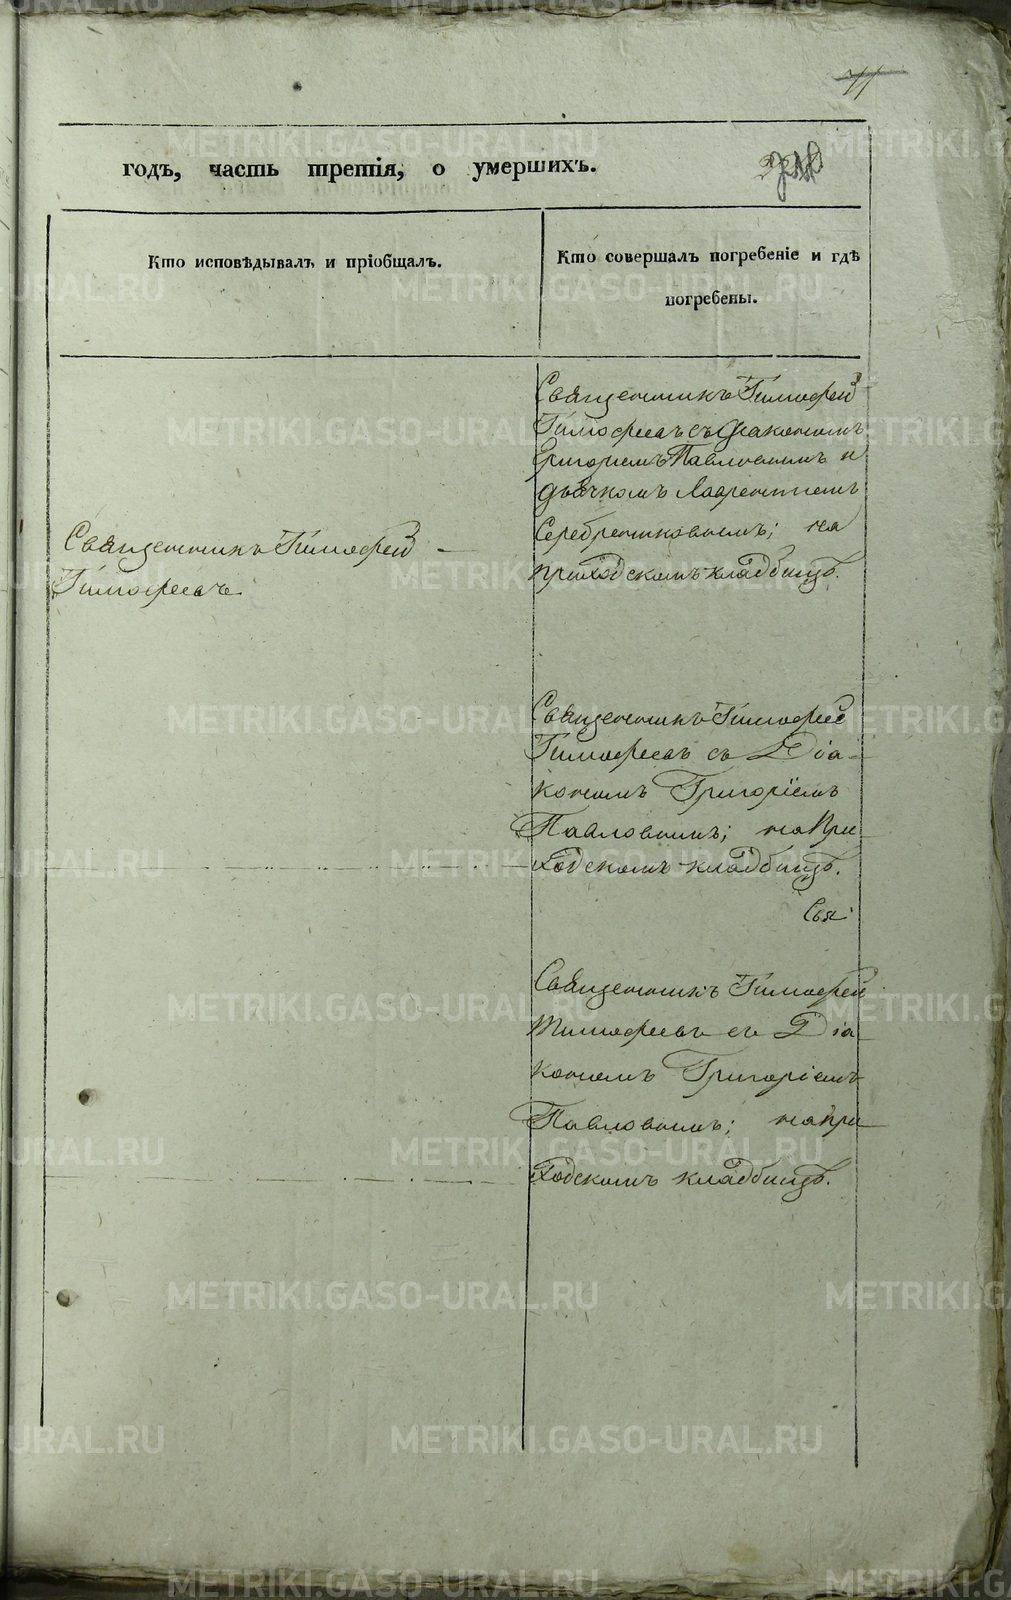 71
годъ, часть третія, о умершихъ.
Кто исповѣдывалъ и пріобщалъ.
Кто совершалъ погребеніе и гдѣ
погребены.
Священникъ Тимофей
Тимофеевъ
Священникъ Тимофей
Тимофеевъ съ Диакономъ
Григоріемъ Павловымъ и
дьячкомъ Лаврентіемъ
Серебрениковымъ; на
приходскомъ кладбищѣ.
Священникъ Тимофей
Тимофеевъ съ Діа-
кономъ Григоріемъ
Павловымъ; на При
ходскомъ кладбищѣ.
Свя
Священникъ Тимофей
Тимофеевъ съ Діа-
кономъ Григоріемъ
Павловымъ; на при
ходскомъ кладбищѣ.
METRIKI.GASO-URAL.RU